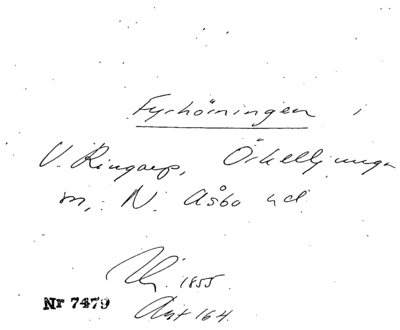 Fyrhörningen i
V. Ringarp, Örkelljunga
sn, N. Åsbo hd
1855.
Akt 164.
Nr 7479